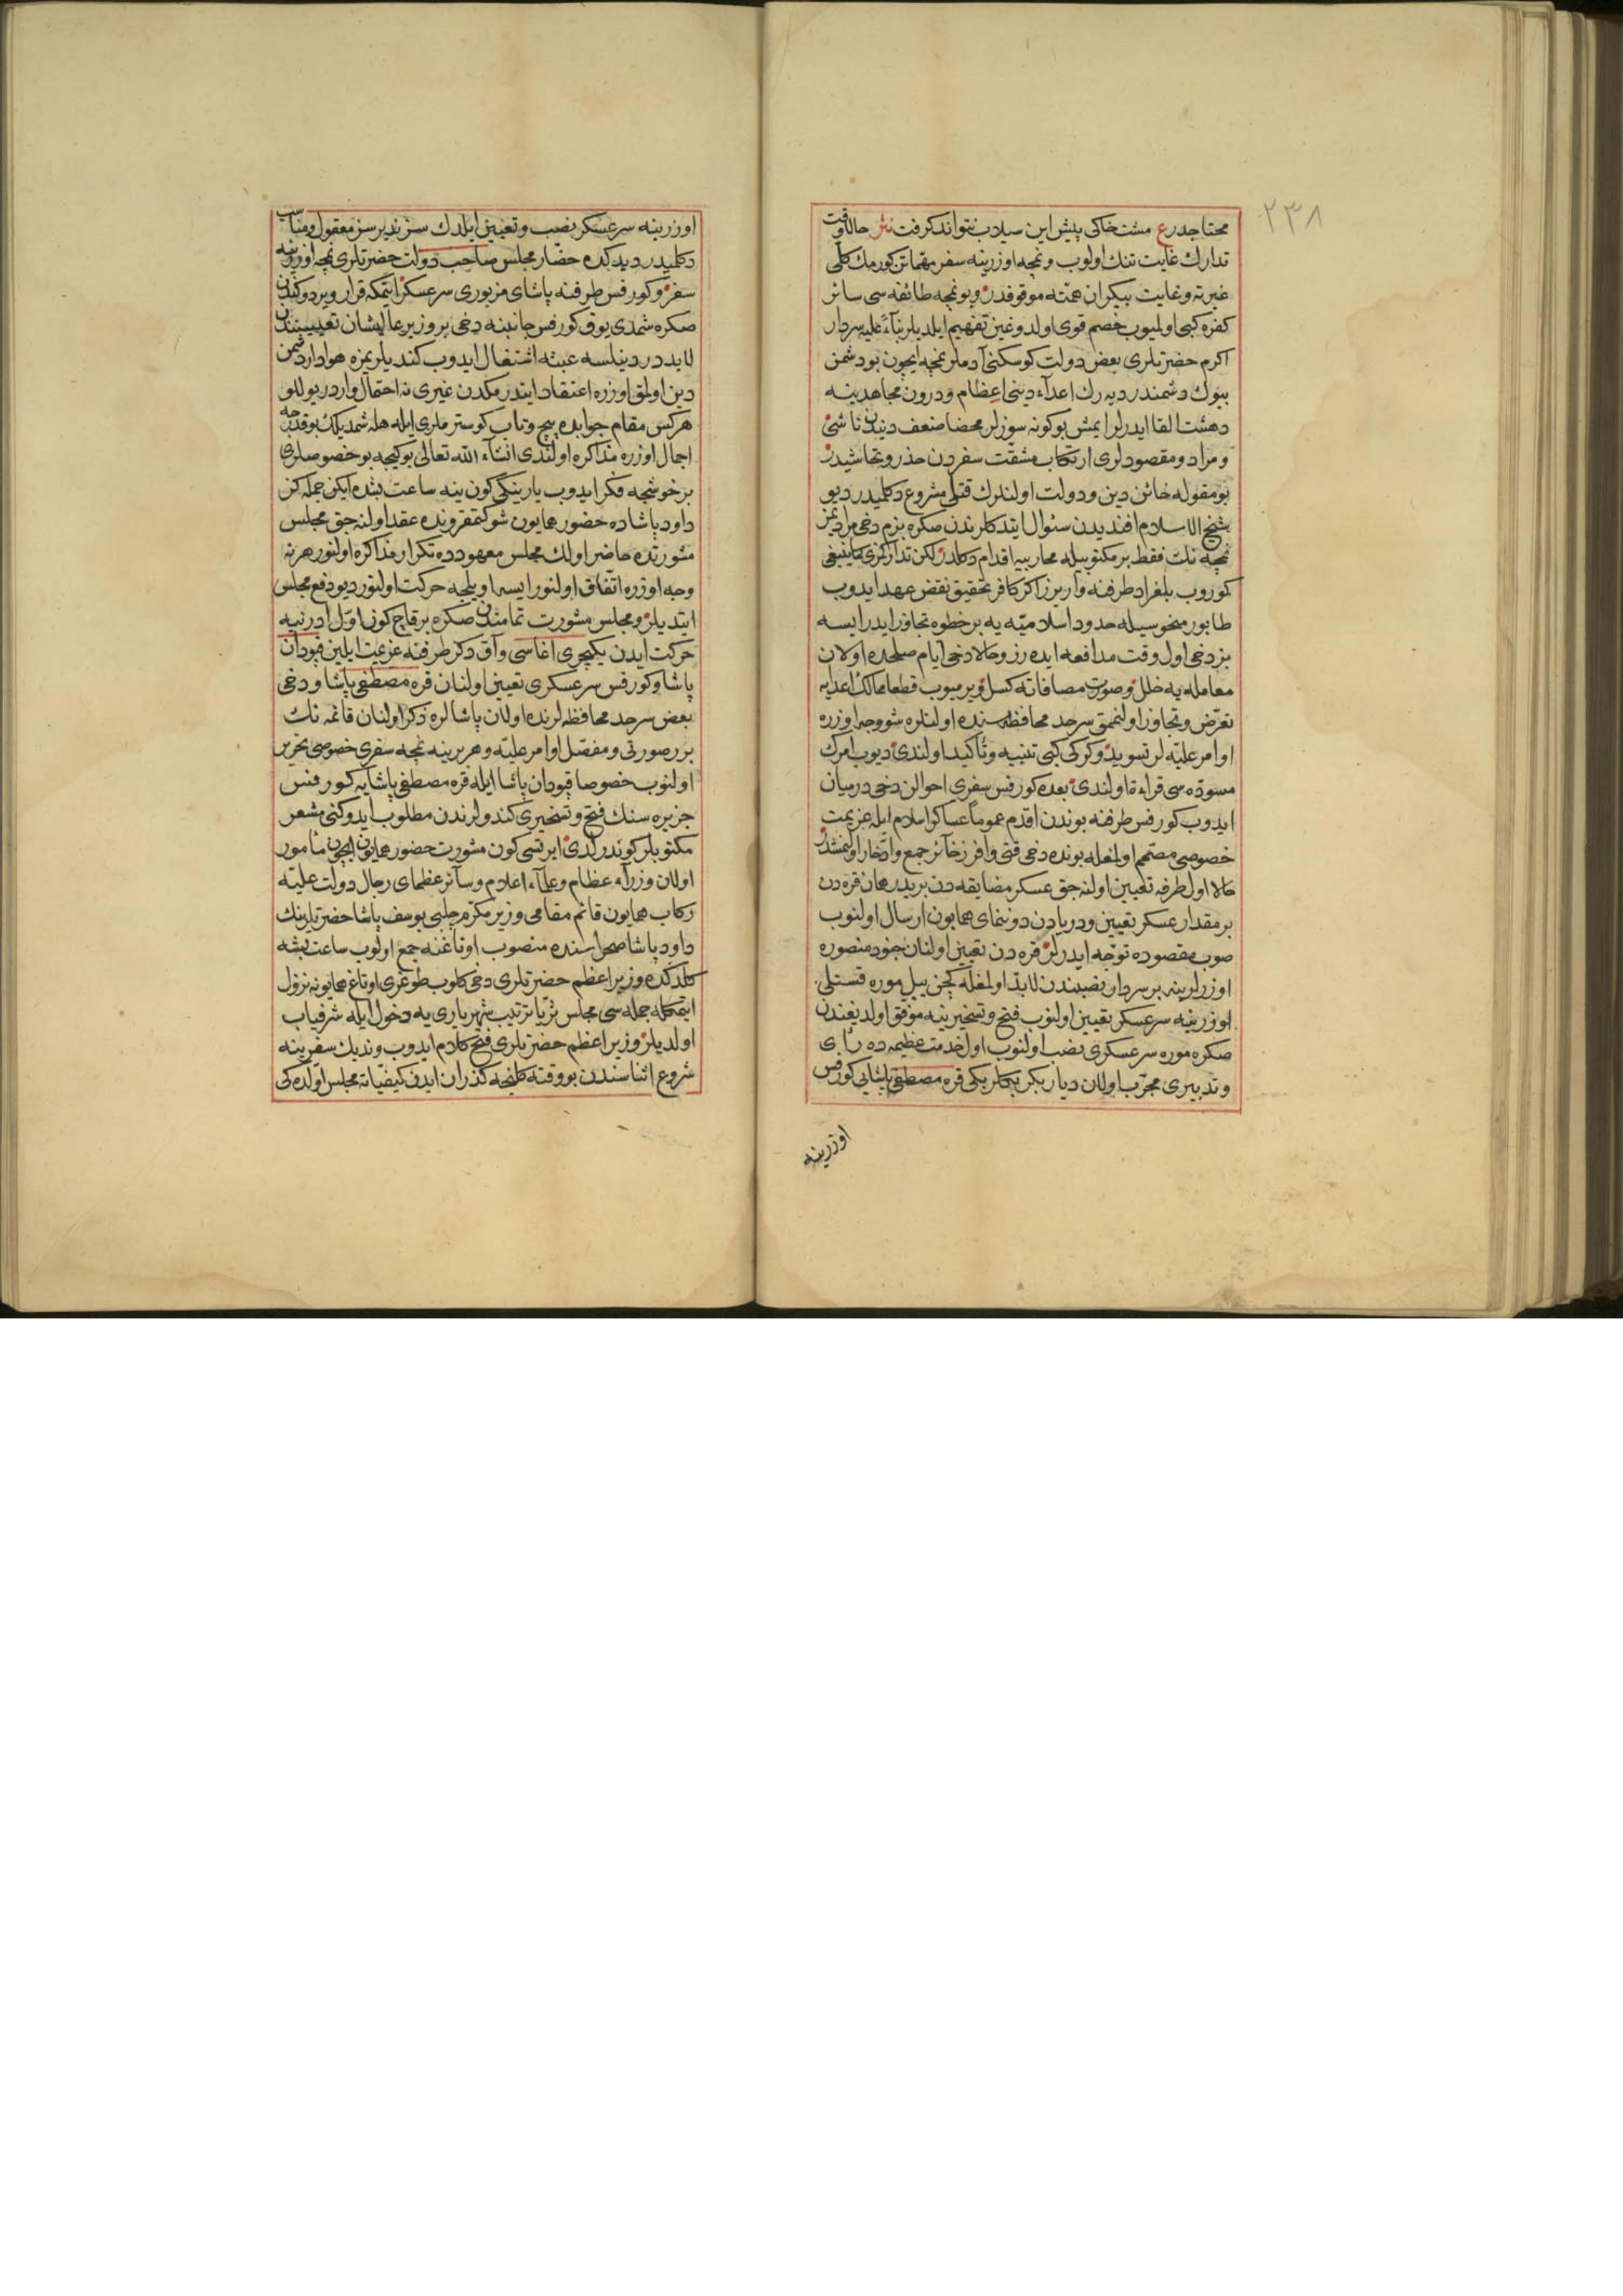 ٢٣٨
محتاجدر ع مشت خاکی پیش این سیلاب نتواند گرفت نثر حالا وقت
تدارك غایت تنك اولوب ونمچه اوزرینه سفر مهماتن کورمك کلّی
غیرته وغایت بیکران همّته موقوفدر وبو نمچه طائفه سی سائر
کفره کبی اولمیوب خصم قوی اولدوغین تفهیم ایلدیلر بناءً علیه سردار
اکرم حضرتلری بعض دولت کوسکنی آدملر نمچه ایچون بو دشمن
بیوك دشمندر دیه رك اعداء دینی اعظام ودرون مجاهدینه
دهشت القا ایدرلر ایمش بو کونه سوزلر محضا ضعف دیندن ناشئ
ومراد ومقصودلری ارتکاب مشقت سفردن حذر وتحاشیدر
بو مقوله خائن دین ودولت اولنلرك قتلی مشروع دکلمیدر دیو
شیخ الاسلام افندیدن سئوال ایتدکلرندن صکره بزم دخی مرادیمز
نمچه نك فقط بر مکتوبیله محاربیه اقدام دکلدر لکن تدارکمزی کما ینبغی
کوروب بلغراد طرفنه واریرز اکر کافر تحقیق نقض عهد ایدوب
طابور منحوسیله حدود اسلامیّه یه بر خطوه تجاوز ایدر ایسه
بز دخی اول وقت مدافعه ایده رز وحالا دخی ایام صلحده اولان
معامله یه خلل وصورت مصافاته کسل ویرمیوب قطعا ممالك اعدایه
تعرّض وتجاوز اولنممق سرحد محافظه سنده اولنلره شو وجه اوزره
اوامر علیّه لر تسوید وکرکی کبی تنبیه وتأکید اولندی دیوب امرك
مسوّده سی قراءة اولندی بعده کورفس سفری احوالن دخی درمیان
ایدوب کورفس طرفنه بوندن اقدم عموماً عساکر اسلام ایله عزیمت
خصوصی مصمّم اولمغله بونده دخی قتی وافر زخآئر جمع وادّخار اولنمشدر
حالا اول طرفه تعیین اولنه جق عسکر مضایقه دن بریدر همان قره دن
بر مقدار عسکر تعیین ودریادن دوننمای همایون ارسال اولنوب
صوب مقصوده توجّه ایدرلر قره دن تعیین اولنان جنود منصوره
اوزرلرینه بر سردار نصبندن لابد اولمغله کچن ییل موره قستلی
اوزرینه سرعسکر تعیین اولنوب فتح وتسخیرینه موفق اولدیغندن
صکره موره سرعسکری نصب اولنوب اول خدمت عظیمه ده رأی
وتدبیری مجرّب اولان دیاربکر بکلربکی قره مصطفی پاشایی کورفس
اوزرینه
اوزرینه سرعسکر نصب وتعیین ایلدك سز نه دیرسز معقول ومناسب
دکلمیدر دیدکده حضار مجلس صاحب دولت حضرتلری نمچه اوزرینه
سفر وکورفس طرفنه پاشای مزبوری سرعسکر ایتمکه قرار ویردوکندن
صکره شمدی یوق کورفس جانبنه دخی بر وزیر عالیشان تعیینندن
لابددر دینلسه عبثه اشتغال ایدوب کندیلریمزه هوادار دشمن
دین اولمق اوزره اعتقاد ایتدرمکدن غیری نه احتمال واردر یوللو
هرکس مقام جوابده پیچ وتاب کوسترملری ایله هله شمدیلك بو قدرجه
اجمال اوزره مذاکره اولندی انشآء الله تعالی بو کیجه بو خصوصلری
بر خوشجه فکر ایدوب یارینکی کون ینه ساعت بشده ایکن جمله کز
داود پاشاده حضور همایون شوکتمقروننده عقد اولنه جق مجلس
مشورتده حاضر اولك مجلس معهودده تکرار مذاکره اولنور هر نه
وجه اوزره اتّفاق اولنور ایسه اویلجه حرکت اولنور دیو دفع مجلس
ایتدیلر ومجلس مشورت تمامندن صکره بر قاچ کون اوّل ادرنیه
حرکت ایدن یکیچری اغاسی وآق دکز طرفنه عزیمت ایلین قپودان
پاشا وکورفس سرعسکری تعیین اولنان قره مصطفی پاشا ودخی
بعض سرحد محافظه لرنده اولان پاشالره ذکر اولنان قائمه نك
برر صورتی ومفصّل اوامر علیّه وهر برینه نمچه سفری خصوصی تحریر
اولنوب خصوصا قپودان پاشا ایله قره مصطفی پاشایه کورفس
جزیره سنك فتح وتسخیری کندولرندن مطلوب ایدوکنی مشعر
مکتوبلر کوندرلدی ایرتسی کون مشورت حضور همایون ایچون مأمور
اولان وزرآء عظام وعلمآء اعلام وسآئر عظمای رجال دولت علیّه
رکاب همایون قائم مقامی وزیر مکرّم چلبی یوسف پاشا حضرتلرینك
داود پاشا صحراسنده منصوب اوتاغنه جمع اولوب ساعت بشه
کلدکده وزیر اعظم حضرتلری دخی کلوب طوغری اوتاغ همایونه نزول
ایتمکله جمله سی مجلس ثریّا ترتیب شهریاری یه دخول ایله شرفیاب
اولدیلر وزیر اعظم حضرتلری فتح کلام ایدوب وندیك سفرینه
شروع اثناسندن بو وقته کلنجه کذران ایدن کیفیّاته مجلس اوّلده کی